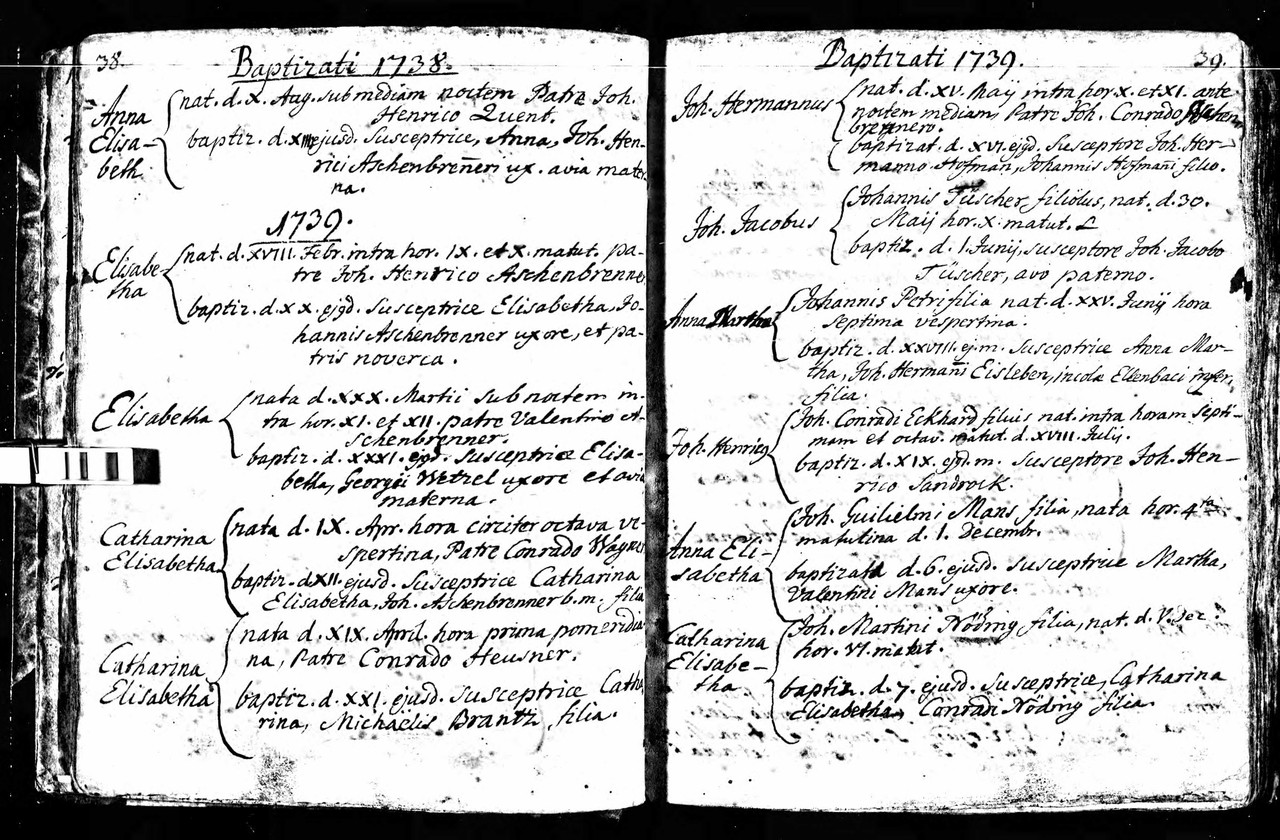 38.
Baptizati 1738.
Anna
Elisa-
beth
nat. d. X. Aug. sub mediam noctem Patre Joh.
Henrico Quent.
baptiz. d. XIII ejusd. Susceptrice, Anna, Joh. Hen-
rici Aschenbreñeri ux. avia mater
na.
1739.
Elisabe-
tha
nat. d. XVIII. Febr. intra hor. IX. et X. matut. pa-
tre Joh. Henrico Aschenbrenne
baptiz. d. XX. ejqd. Susceptrice Elisabetha, Jo-
hannis Aschenbrenner uxore, et pa-
tris noverca.
Elisabetha
nata d. XXX. Martii sub noctem in-
tra hor. XI. et XII. patre Valentino A-
schenbrenner.
baptiz. d. XXXI. ejqd. Susceptrice Elisa-
betha, Georgii Wetzel uxore et avia
materna.
Catharina
Elisabetha
nata d. IX. Apr. hora circiter octava ve-
spertina, Patre Conrado Wagner
baptiz. d XII. ejusd. Susceptrice Catharina
Elisabetha, Joh. Aschenbrenner b. m. filia
Catharina
Elisabetha
nata d. XIX. April. hora prima pomeridia-
na, Patre Conrado Heusner.
baptiz. d. XXI. ejusd. Susceptrice Catha
rina, Michaëlis Brantz filia.
Baptizati 1739.
39.
Joh. Hermannus
nat. d. XV. Maij intra hor. X. et XI. ante
noctem mediam, Patre Joh. Conrado Aschen
brennero.
baptizat. d. XVI. ejqd. Susceptore Joh. Her-
manno Hofmañ, Johannis Hofmañi filio.
Joh. Jacobus
Johannis Tüscher filiolus, nat. d. 30.
Maij hor. X. matut.
baptiz. d. 1. Junij, susceptore Joh. Jacobo
Tüscher, avo paterno.
Anna Martha
Johannis Petri filia nat. d. XXV. Junij hora
septima vespertina.
baptiz. d. XXVIII. ej. m. Susceptrice Anna Mar-
tha, Joh. Hermañi Eisleben, incolæ Ellenbaci infer.
filia.
Joh. Henricq
Joh. Conradi Eckhard filius nat. intra horam septi-
mam et octav. matut. d. XVIII. Julij.
baptiz. d. XIX. ejqd. m. Susceptore Joh. Hen-
rico Sandrock.
Anna Eli-
sabetha
Joh. Guilielmi Mans filia, nata hor. 4ta
matutina d. 1. Decembr.
baptizata d. 6. ejusd. susceptrice Martha,
Valentini Mans uxore.
Catharina
Elisabe-
tha
Joh. Martini Nöding filia, nat. d. V. Dec.
hor. VI. matut.
baptiz. d. 7. ejusd. Susceptrice, Catharina
Elisabetha, Conradi Nöding filia.